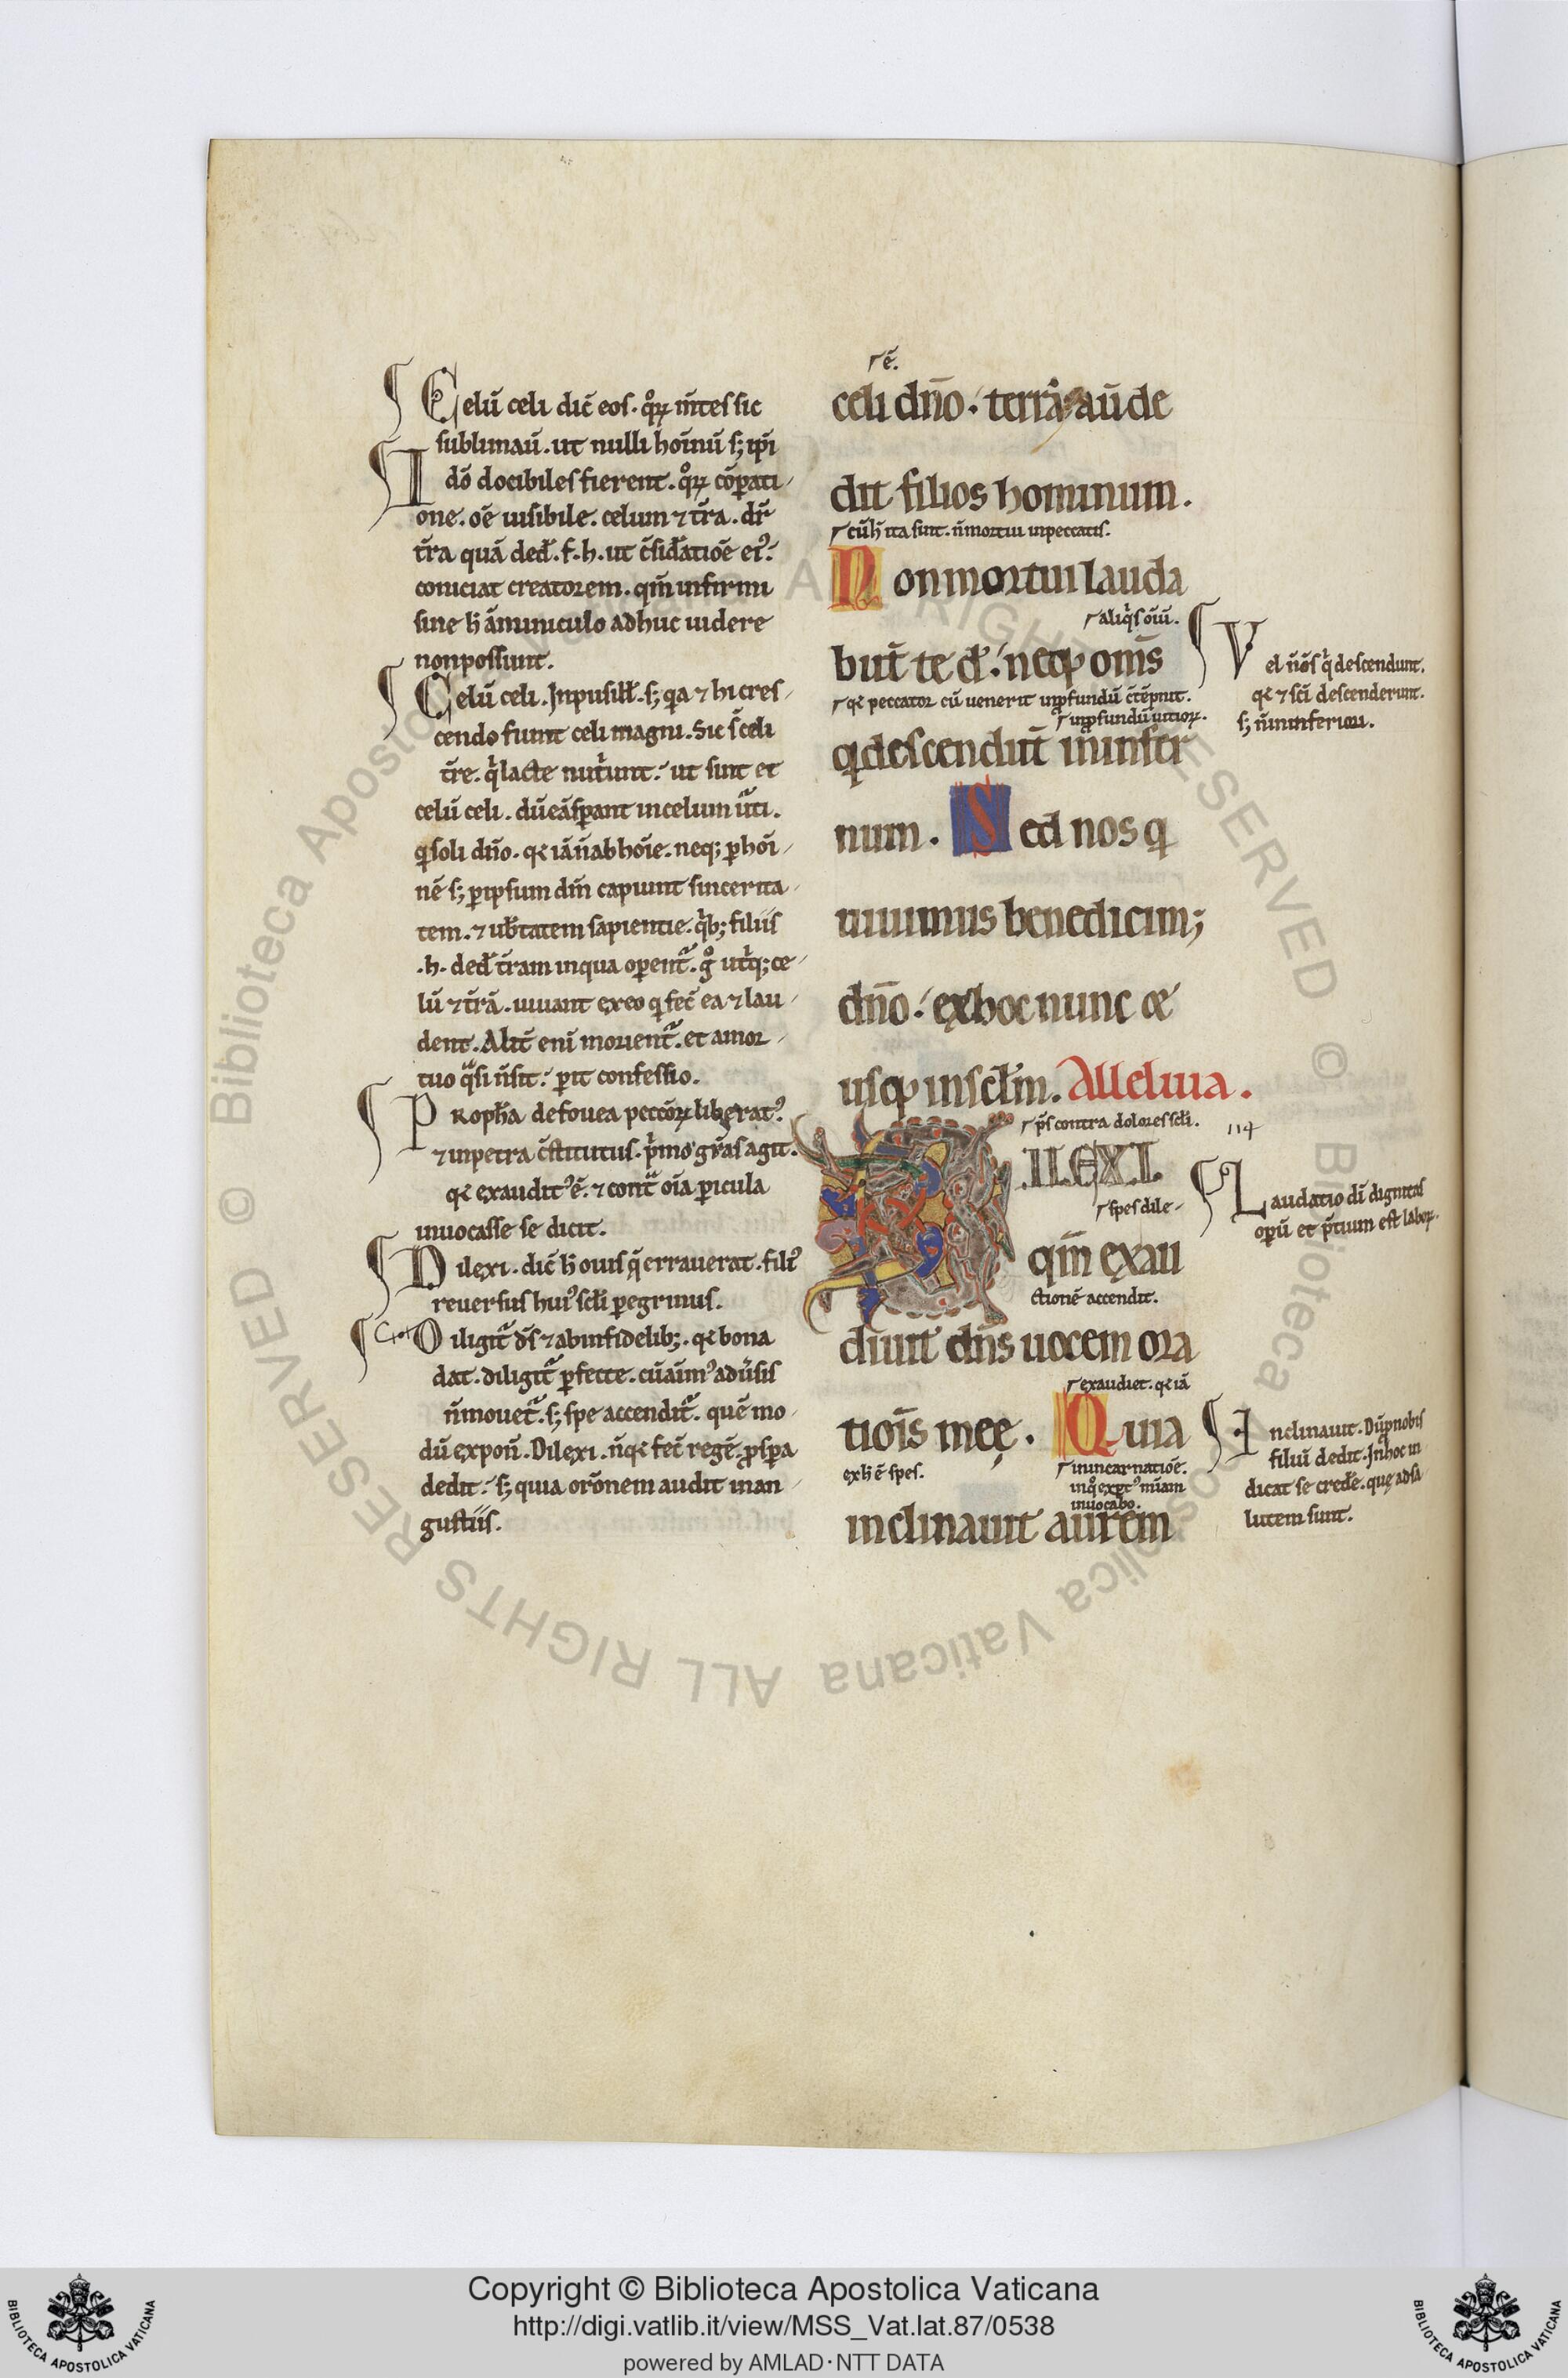 Celū celi dic̄ eos. qͦꝝ m̄tes sic
sublimaū. ut nulli hoīnū s; ip̄i
dō docibiles fierent. qͦꝝ cōꝑati
one. oē uisibile. celum ⁊ tr̄a. dr̄
tr̄a quā ded̄. f. h. ut
coniciat creatorem. qm̄ infirmi
sine h̄ āminiculo adhuc uidere
non possunt.
Celū celi. In pusill̄. s; q̇a ⁊ hi cres
cendo fiunt celi magni. Sic
tr̄e. q̇ lacte nutͥunt. ut sint et
celū celi. in celum
q̇ soli dn̄o. qꝛ iā n̄ ab hoīe. neq; ꝑ hoī
nē s; ꝑ ipsum dm̄ capiunt sincerita
tem. ⁊ ub̄tatem sapientie. qͥb; filiis
.h. ded̄ tr̄am in qua oꝑent̄. gͦ utͥq; ce
lū ⁊ tr̄ā. uiuant ex eo q̇ fec̄ ea ⁊ lau
dent. Alit̄ eni morient̄. et a mor
tuo qͣsi n̄ sit. ꝑit confessio.
Propħa de fouea peccōꝝ liberatꝰ
⁊ in petra c̄stitutus. pͥmo gr̄as agit.
qꝛ exauditꝰ ē. ⁊ contͣ oīa ꝑicula
inuocasse se dicit.
Dilexi. dic̄ h̄ ouis q̄ errauerat. filiꝰ
reuersus huiꝰ scl̄i ꝑegrinus.
Diligit̄ ds̄ ⁊ ab infidelib;. qꝛ bona
dat. diligit̄ ꝑfecte. cū aīmꝰ adūsis
n̄ mouet̄. s; spe accendit̄. quē mo
dū expon̄. Dilexi. n̄ qꝛ fec̄ regē ꝓsꝑa
dedit. s; quia orōnem audit in an
gustiis.
ē.
celi dn̄o. terrā aū de
dit filios hominum.
cū h̄ ita sint. n̄ mortui in peccatis.
Non mortui lauda
aliqͥs oīu.
bu͞t te d̄. neq; om̄s
qꝛ peccator cū uenerit in ꝓfundū c̄tēpnit.
in ꝓfundū uitioꝝ.
q̇ descendu͞t in infer
num. Sed nos q̇
uiuimus benedicim;
dn̄o. ex hoc nunc ⁊
usq; in scl̄m. Alleluia.
ps̄ contra dolores scl̄i. 114
DILEXI
spes dile
qm̄ exau
ctionē accendit.
diuit dn̄s uocem ora
exaudiet. qꝛ iā
tiōis meę. Quia
ex h̄ ē spes. in incarnatiōe.
inuocabo.
inclinauit aurem
Vel nōs q̇ descendunt.
qꝛ ⁊ sc̄i descenderunt.
s; n̄ in inferiori.
Laudatio dī dignitas
oꝑū et p̄tium est laboꝝ.
Inclinauit. Dū ꝓ nobis
filiū dedit. In hoc in
dicat se creder̄. quę ad sa
lutem sunt.
Copyright © Biblioteca Apostolica Vaticana
http://digi.vatlib.it/view/MSS_Vat.lat.87/0538
powered by AMLAD·NTT DATA
BIBLIOTECA APOSTOLICA VATICANA
BIBLIOTECA APOSTOLICA VATICANA
© Biblioteca Apostolica Vaticana ALL RIGHTS RESERVED © Biblioteca Apostolica Vaticana ALL RIGHTS RESERVED